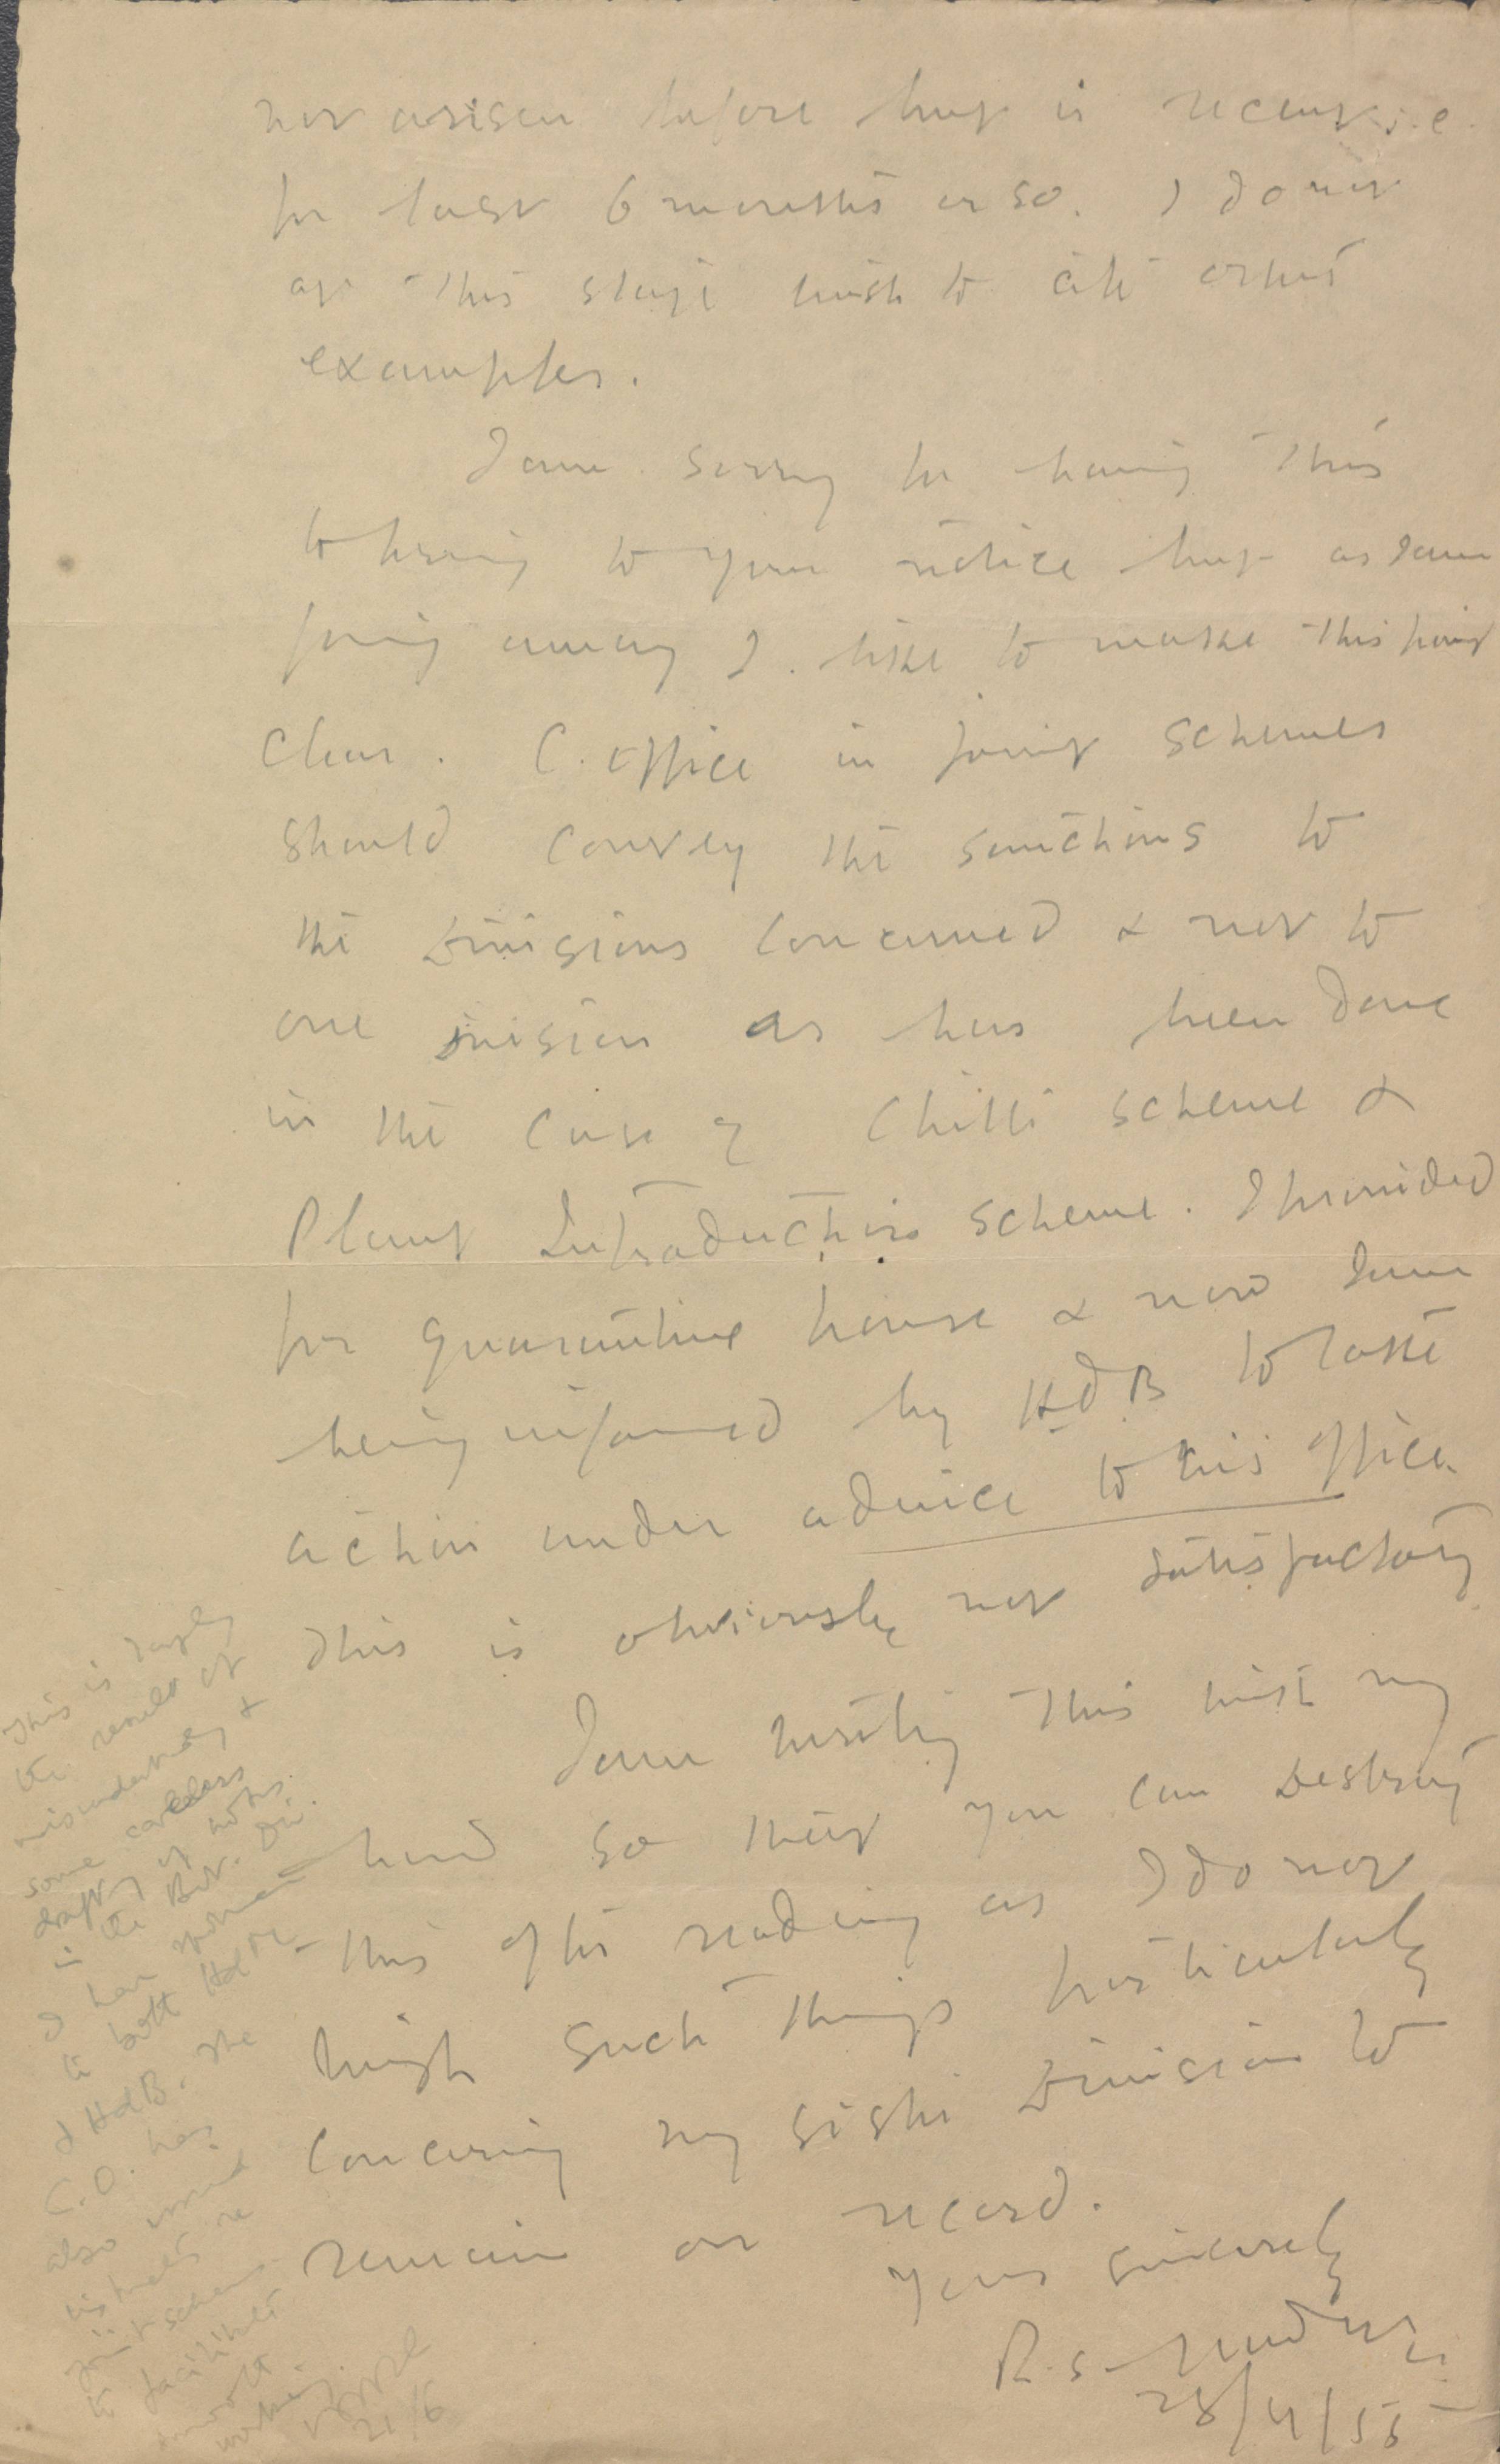 not arisen before but is recent i.e.
for last 6 months or so. I do not
at this stage wish to cite other
examples.
I am sorry for having this
to bring to your notice but as I am
going away I like to make this point
clear. C. office in joint schemes
should convey the sanctions to
the Divisions concerned & not to
one Division as has been done
in the case of Chilli scheme &
Plant Introduction scheme. I provided
for quarantine house & now I am
being informed by H d B to take
action under advice to his office.
This is obviously not satisfactory
I am writing this with my
hand so that you can destroy
this after reading as I do not
wish such things particularly
concerning my sister Division to
remain on record.
Yours sincerely
R. S.
28/4/55
This is largely
the result of
misunderstanding &
some careless
drafting of notes
in the Bot. Div.
I have spoken
to both
& HdB. The
C.O. has
also issued
instructions re
joint schemes
to facilitate
smooth
working.
21/6